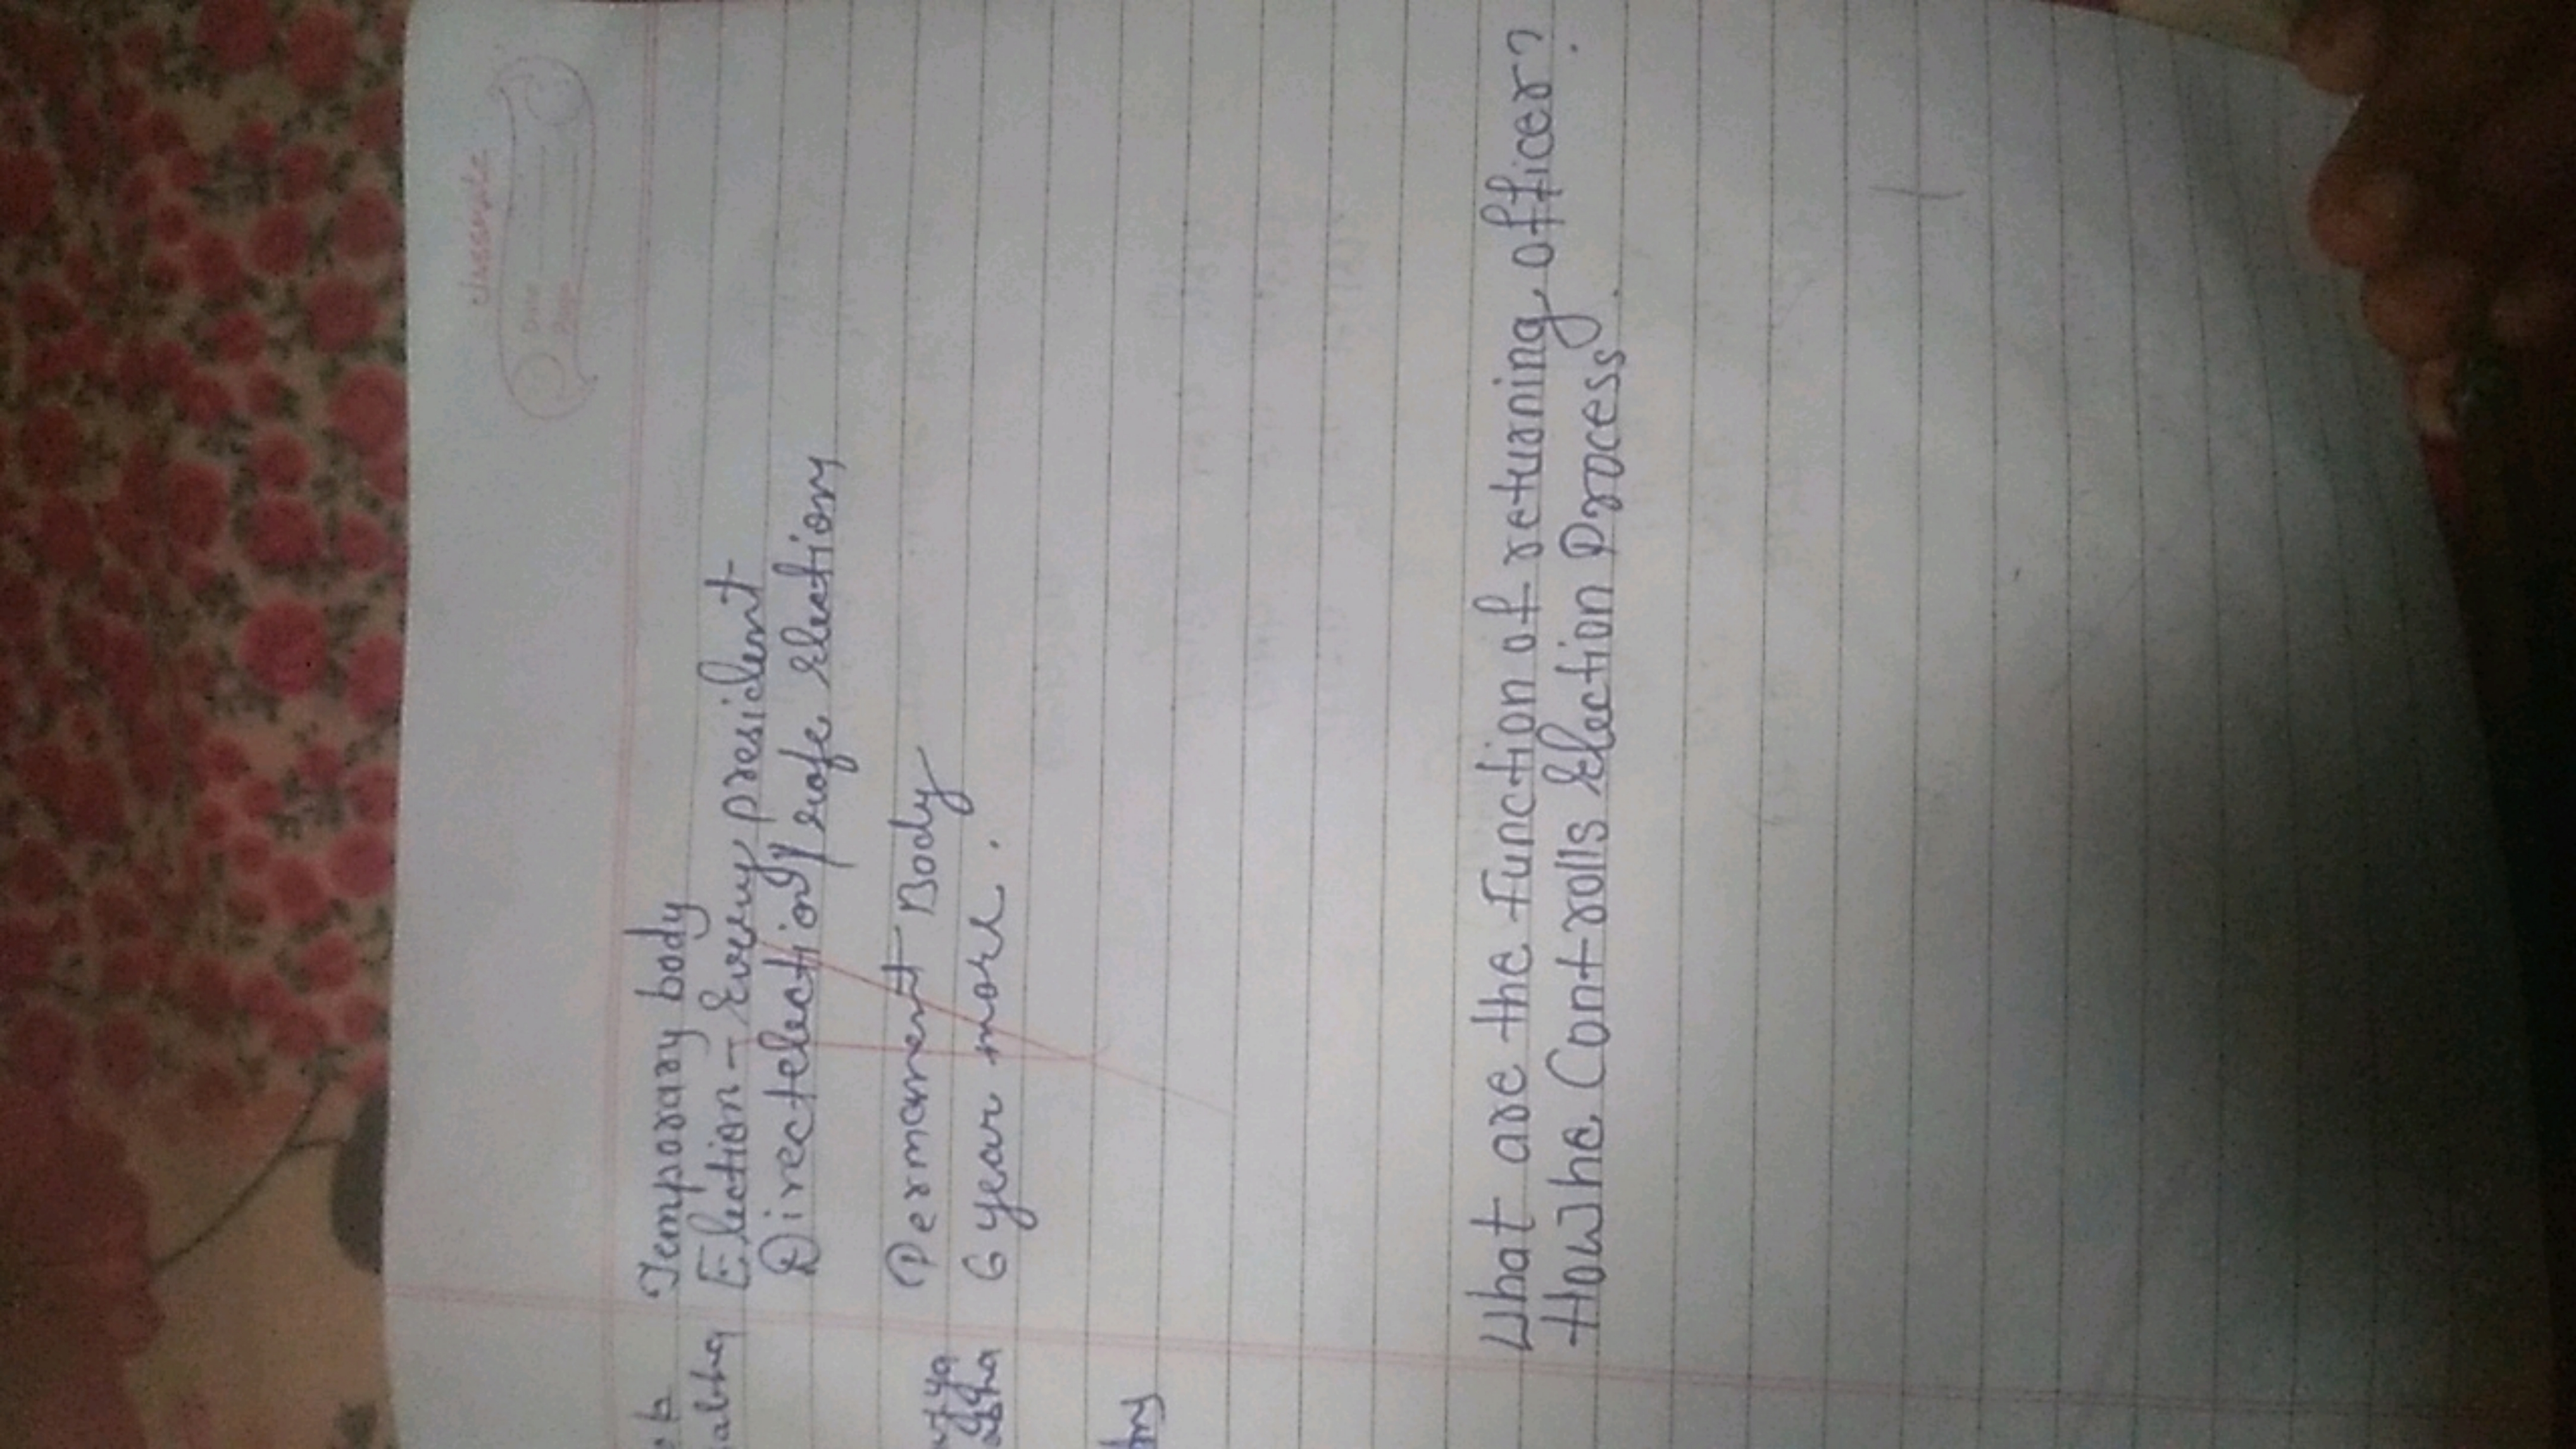 classmate
Date
Page
Temporary body
abha Election - Every president
Directelectiony safe election
Permanent Body
sabha 6 year more.
What are the function of returning officer?
How he Controlls election Process.